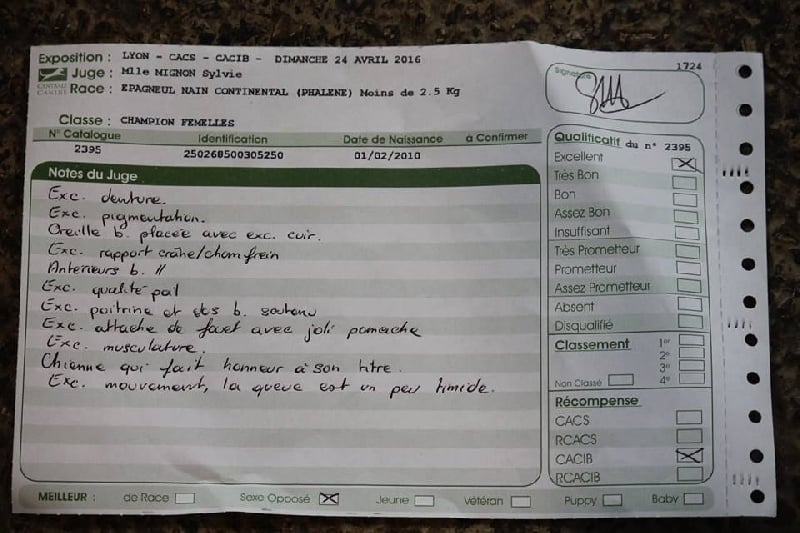 Exposition : LYON - CACS - CACIB - DIMANCHE 24 AVRIL 2016
Juge : Mlle MIGNON Sylvie
CENTRALE CANINE
Race : EPAGNEUL NAIN CONTINENTAL (PHALENE) Moins de 2.5 Kg
1724
Signature
Classe : CHAMPION FEMELLES
N° Catalogue Identification Date de Naissance à Confirmer
2395 250268500305250 01/02/2010
Notes du Juge
Exc. denture.
Exc. pigmentation.
Oreille b. placée avec exc. cuir.
Exc. rapport crâne/chanfrein
Antérieurs b. //
Exc. qualité poil
Exc. poitrine et dos b. soutenu
Exc. attache de fouet avec joli panache
Exc. musculature.
Chienne qui fait honneur à son titre.
Exc. mouvement, la queue est un peu timide.
Qualificatif du n° 2395
Excellent
Très Bon
Bon
Assez Bon
Insuffisant
Très Prometteur
Prometteur
Assez Prometteur
Absent
Disqualifié
Classement 1er
2e
3e
Non Classé 4e
Récompense
CACS
RCACS
CACIB
RCACIB
MEILLEUR : de Race Sexe Opposé Jeune Vétéran Puppy Baby